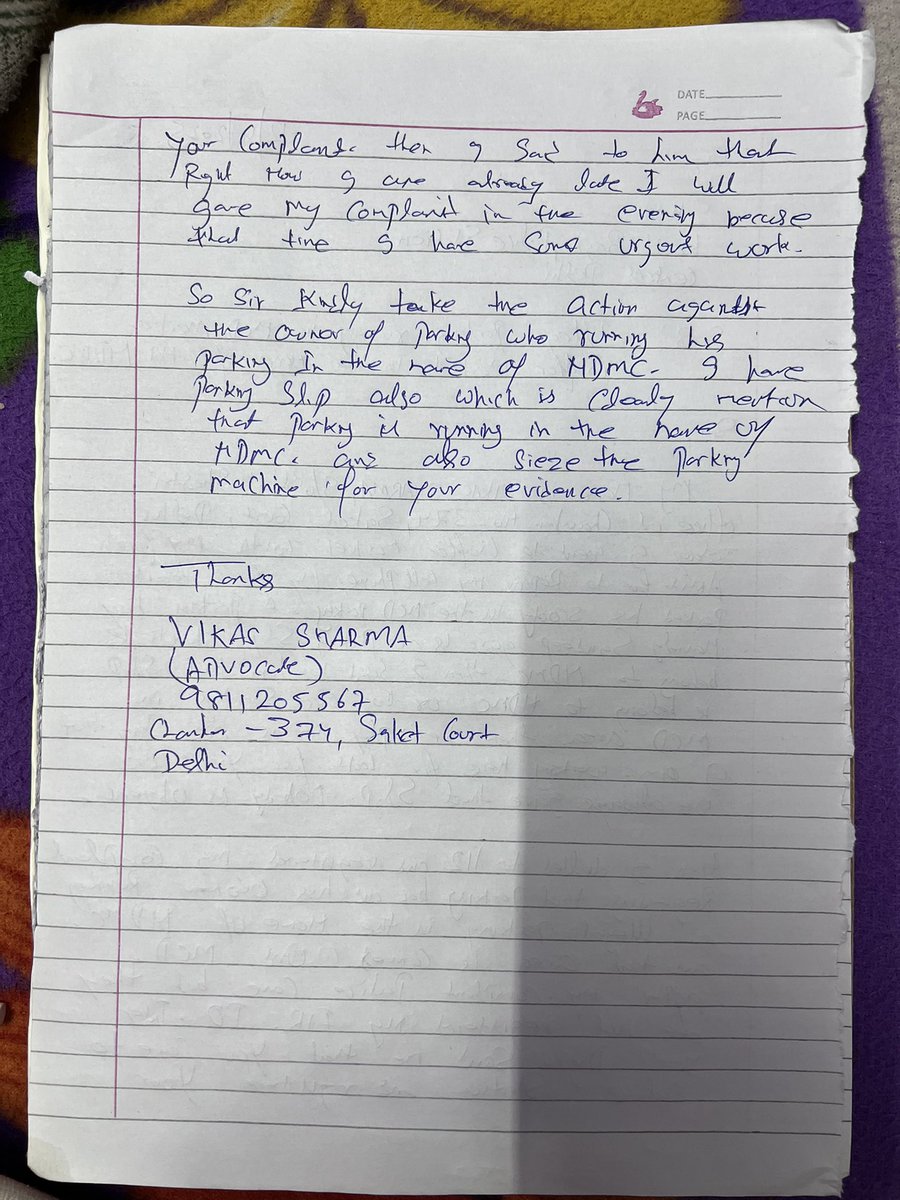 DATE
PAGE
Your Complaint. then I Said to him that
Right Now I are already late I will
gave My Complaint in the evening becuse
that time I have Some urgent work.
So Sir Kindly take the action against
the owner of Parking who running his
parking In the name of NDMC. I have
Parking Slip also which is Clearly mention
that Parking is running in the name of
NDMC. and also Sieze the Parking
machine for your evidence.
Thanks
VIKAS SHARMA
(ADVOCATE)
9811205567
Chamber - 374, Saket Court
Delhi